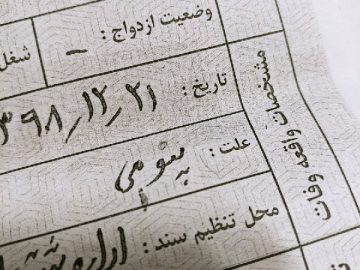 وضعیت ازدواج : –
شغل
مشخصات واقعه وفات
تاریخ : ۱۳۹۸/۱۲/۲۱
علت :
محل تنظیم سند : اداره